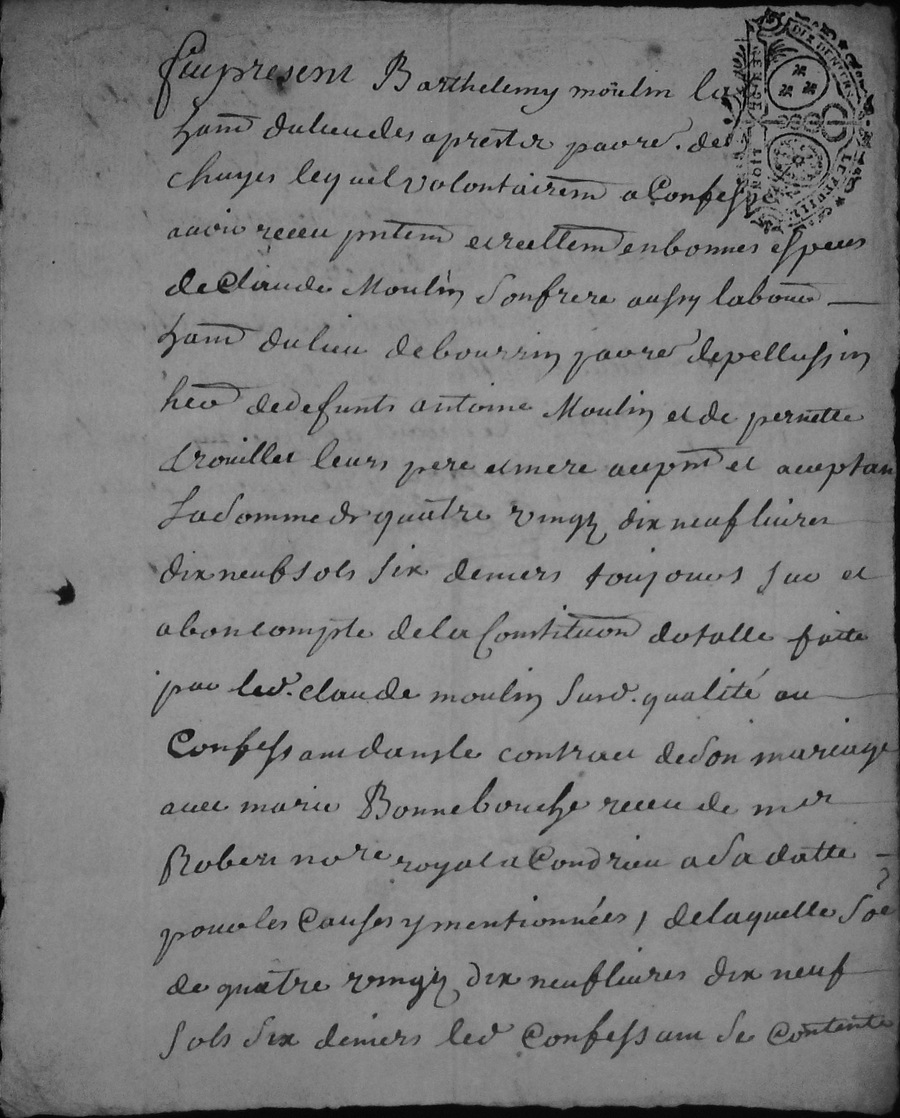 fut present Barthelemy moulin la
hant du lieu des aprest et paroe. de
chuyes lequel volontairemt a Confessé
avoir receu pntemt et reellemt en bonnes especes
de Claude Moulin son frere aussy laboure
hant du lieu de bourrin paroe de pellussin
heo de defunts antoine Moulin et de pernette
drouillet leurs pere et mere au pnt et aceptan
La somme de quatre vingt dix neuf livres
dix neuf sols six deniers toujours sur et
a bon compte de la Constituon dotalle faitte
par led. claude moulin sur d. qualité au
Confessant dans le contract de son mariage
avec marie Bonnebouche receu de mer
Robert nore royal a Condrieu a sa datte
pour les Causes y mentionnées, de laquelle soe
de quatre vingt dix neuf livres dix neuf
sols six deniers led Confessant se contente
DIX DENIERS
LE FEUILLE
DROIT